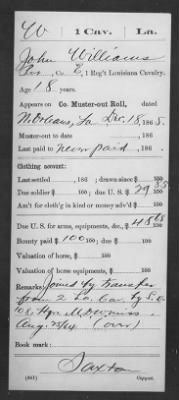 W | 1 Cav. | La.
John Williams
Co. E, 1 Reg't Louisiana Cavalry.
Age 18 years.
Appears on Co. Muster-out Roll, dated
N. Orleans, La. Dec. 18, 1865.
Muster-out to date , 186 .
Last paid to never paid , 186 .
Clothing account:
Last settled , 186 ; drawn since $ 100
Due soldier $ 100 ; due U. S. $ 79 85/100
Am't for cloth'g in kind or money adv'd $ 100
Due U. S. for arms, equipments, &c., $ 48 68/100
Bounty paid $ 100 100 ; due $ 100
Valuation of horse, $ 100
Valuation of horse equipments, $ 100
Remarks: Joined by transfer
from 2 La. Cav.
Aug. /64 (over)
Book mark:
Saxton
(361) Copyist.